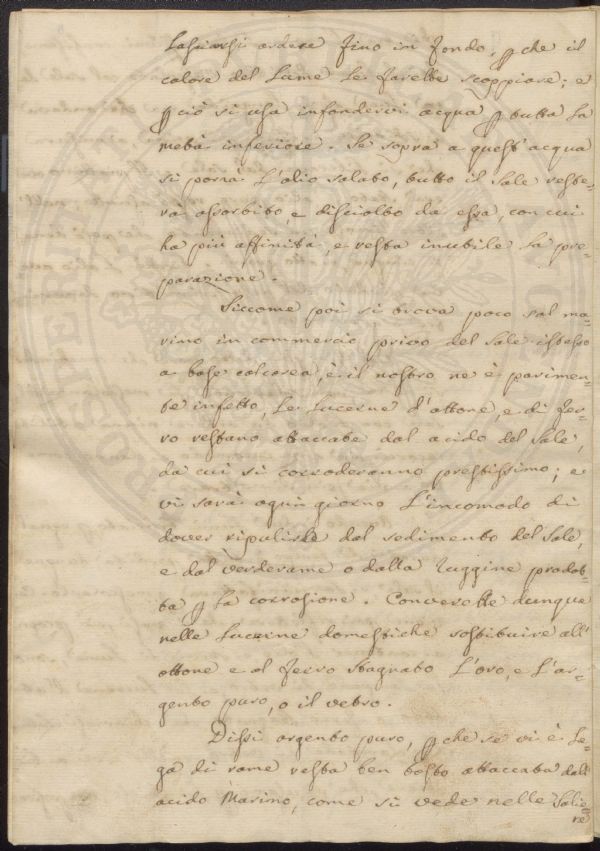 Lasciarsi ardere fino in fondo, p che il
calore del Lume le farebbe scoppiare; e
p ciò si usa infondervi acqua p tutta la
metà inferiore. Se sopra a quest'acqua
si porrà l'olio salato, tutto il Sale reste-
rà assorbito, e disciolto da essa, con cui
ha più affinità, e resta inutile la pre-
parazione.
Siccome poi si trova poco sal ma-
rino in commercio privo del Sale istesso
a base calcarea, è il nostro ne è parimen-
te infetto, Le Lucerne d'ottone, e di fer-
ro restano attaccate dal acido del Sale,
da cui si corroderanno prestissimo; e
vi sarà ogni giorno l'incomodo di
dover ripulirle dal sedimento del Sale,
e dal verderame o dalla ruggine prodot-
ta p la corrosione. Converrebbe dunque
nelle Lucerne domestiche sostituire all'
ottone e al ferro stagnato L'oro, e L'ar-
gento puro, o il vetro.
Dissi argento puro, p che se vi è Le-
ga di rame resta ben tosto attaccata dall
acido Marino, come si vede nelle Salie-
re